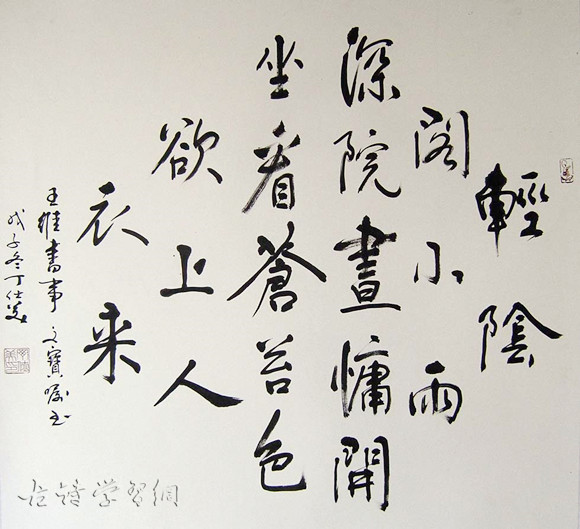 輕陰
閣小雨
深院晝慵開
坐看蒼苔色
欲上人
衣来
王維書事 文寶嘱书
戊子冬丁仕美
学習網